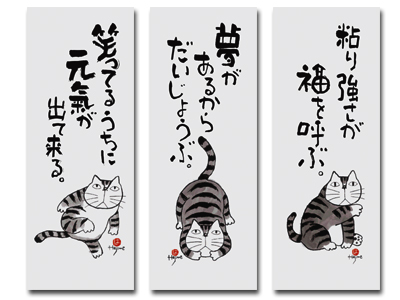 笑ってるうちに
元氣が
出て来る。
Hajime
夢が
あるから
だいじょうぶ。
Hajime
粘り強さが
福を呼ぶ。
Hajime